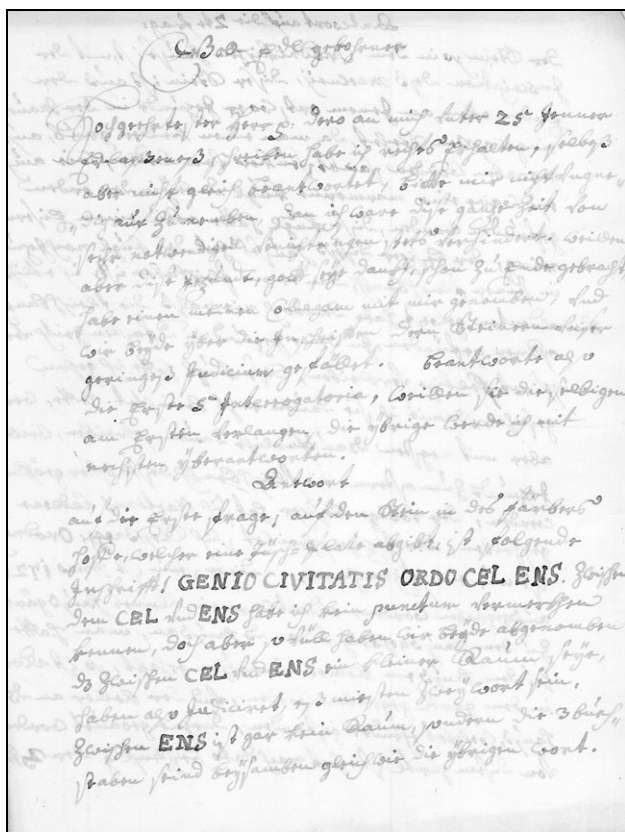 Woll Edl gebohrner
Hochgeehrtester Herr p. dero an mich unter 25ᵗ Jenner
habe ich rechts Erhalten, selbes
aber nicht gleich beantwortet, bitte mir nicht ungne-
dig auf Zu nemben, dan ich ware dise ganze Zeit von
sehr notwendigen verhindert. weillen
aber dise, gott seye danckh, schon Zu Ende gebracht,
habe einen meinen Collegam mit mir genomben, und
wir beyde über die Inschrifften deren Steinern unser
geringes Judicium gefället. beantworte also
die Erste 5 Interrogatoria, weillen sie dieselbigen
am Ersten verlangen, die ybrige werde ich mit
nechsten yberantworten.
Antwort
auf die Erste frage, auf den Stein in des farbers
hoffe, welcher eine abgibt, ist folgende
Inschrifft! GENIO CIVITATIS ORDO CEL ENS. Zwischen
dem CEL und ENS habe ich kein punctum vermerckhen
kennen, doch aber so vill haben wir beyde abgenomben
dz Zwischen CEL und ENS ein kleiner Raum seye,
haben also Judiciret, es miesten Zwey wort sein,
Zwischen ENS ist gar kein Raum, sondern die 3 buch-
staben seind beysamben gleich wie die ybrigen wort.